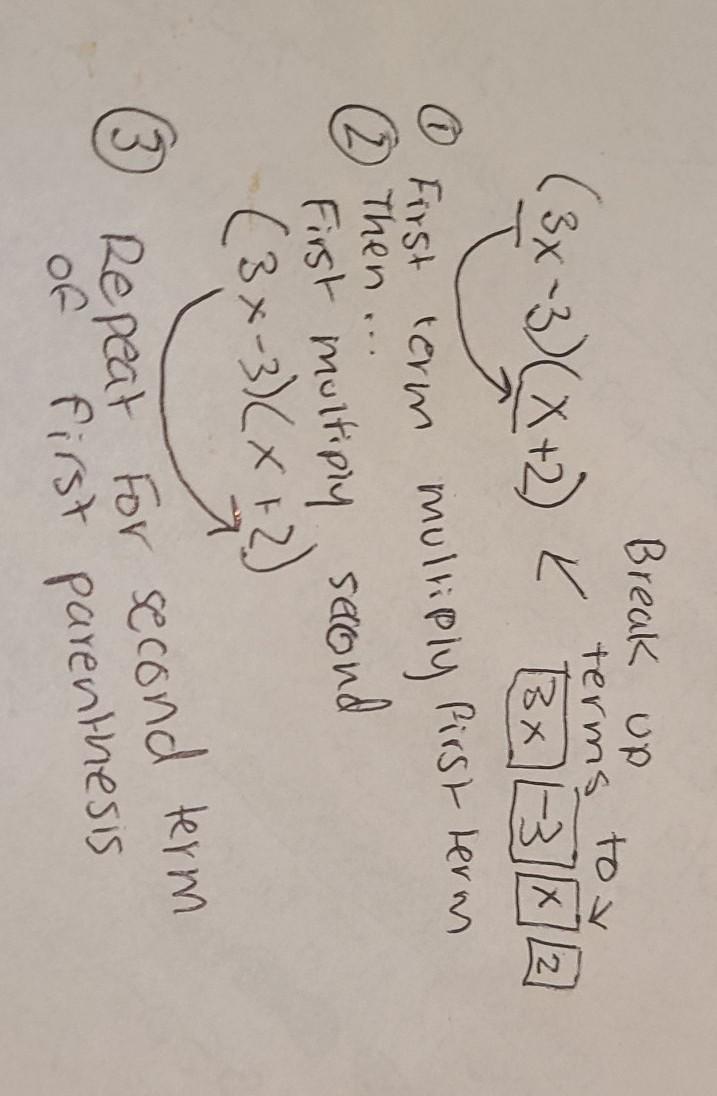 Break up
terms to ↓
(3x-3)(x+2) ← 3x -3 x 2
① First term multiply first term
② Then...
First multiply second
(3x-3)(x+2)
③ Repeat for second term
of first parenthesis